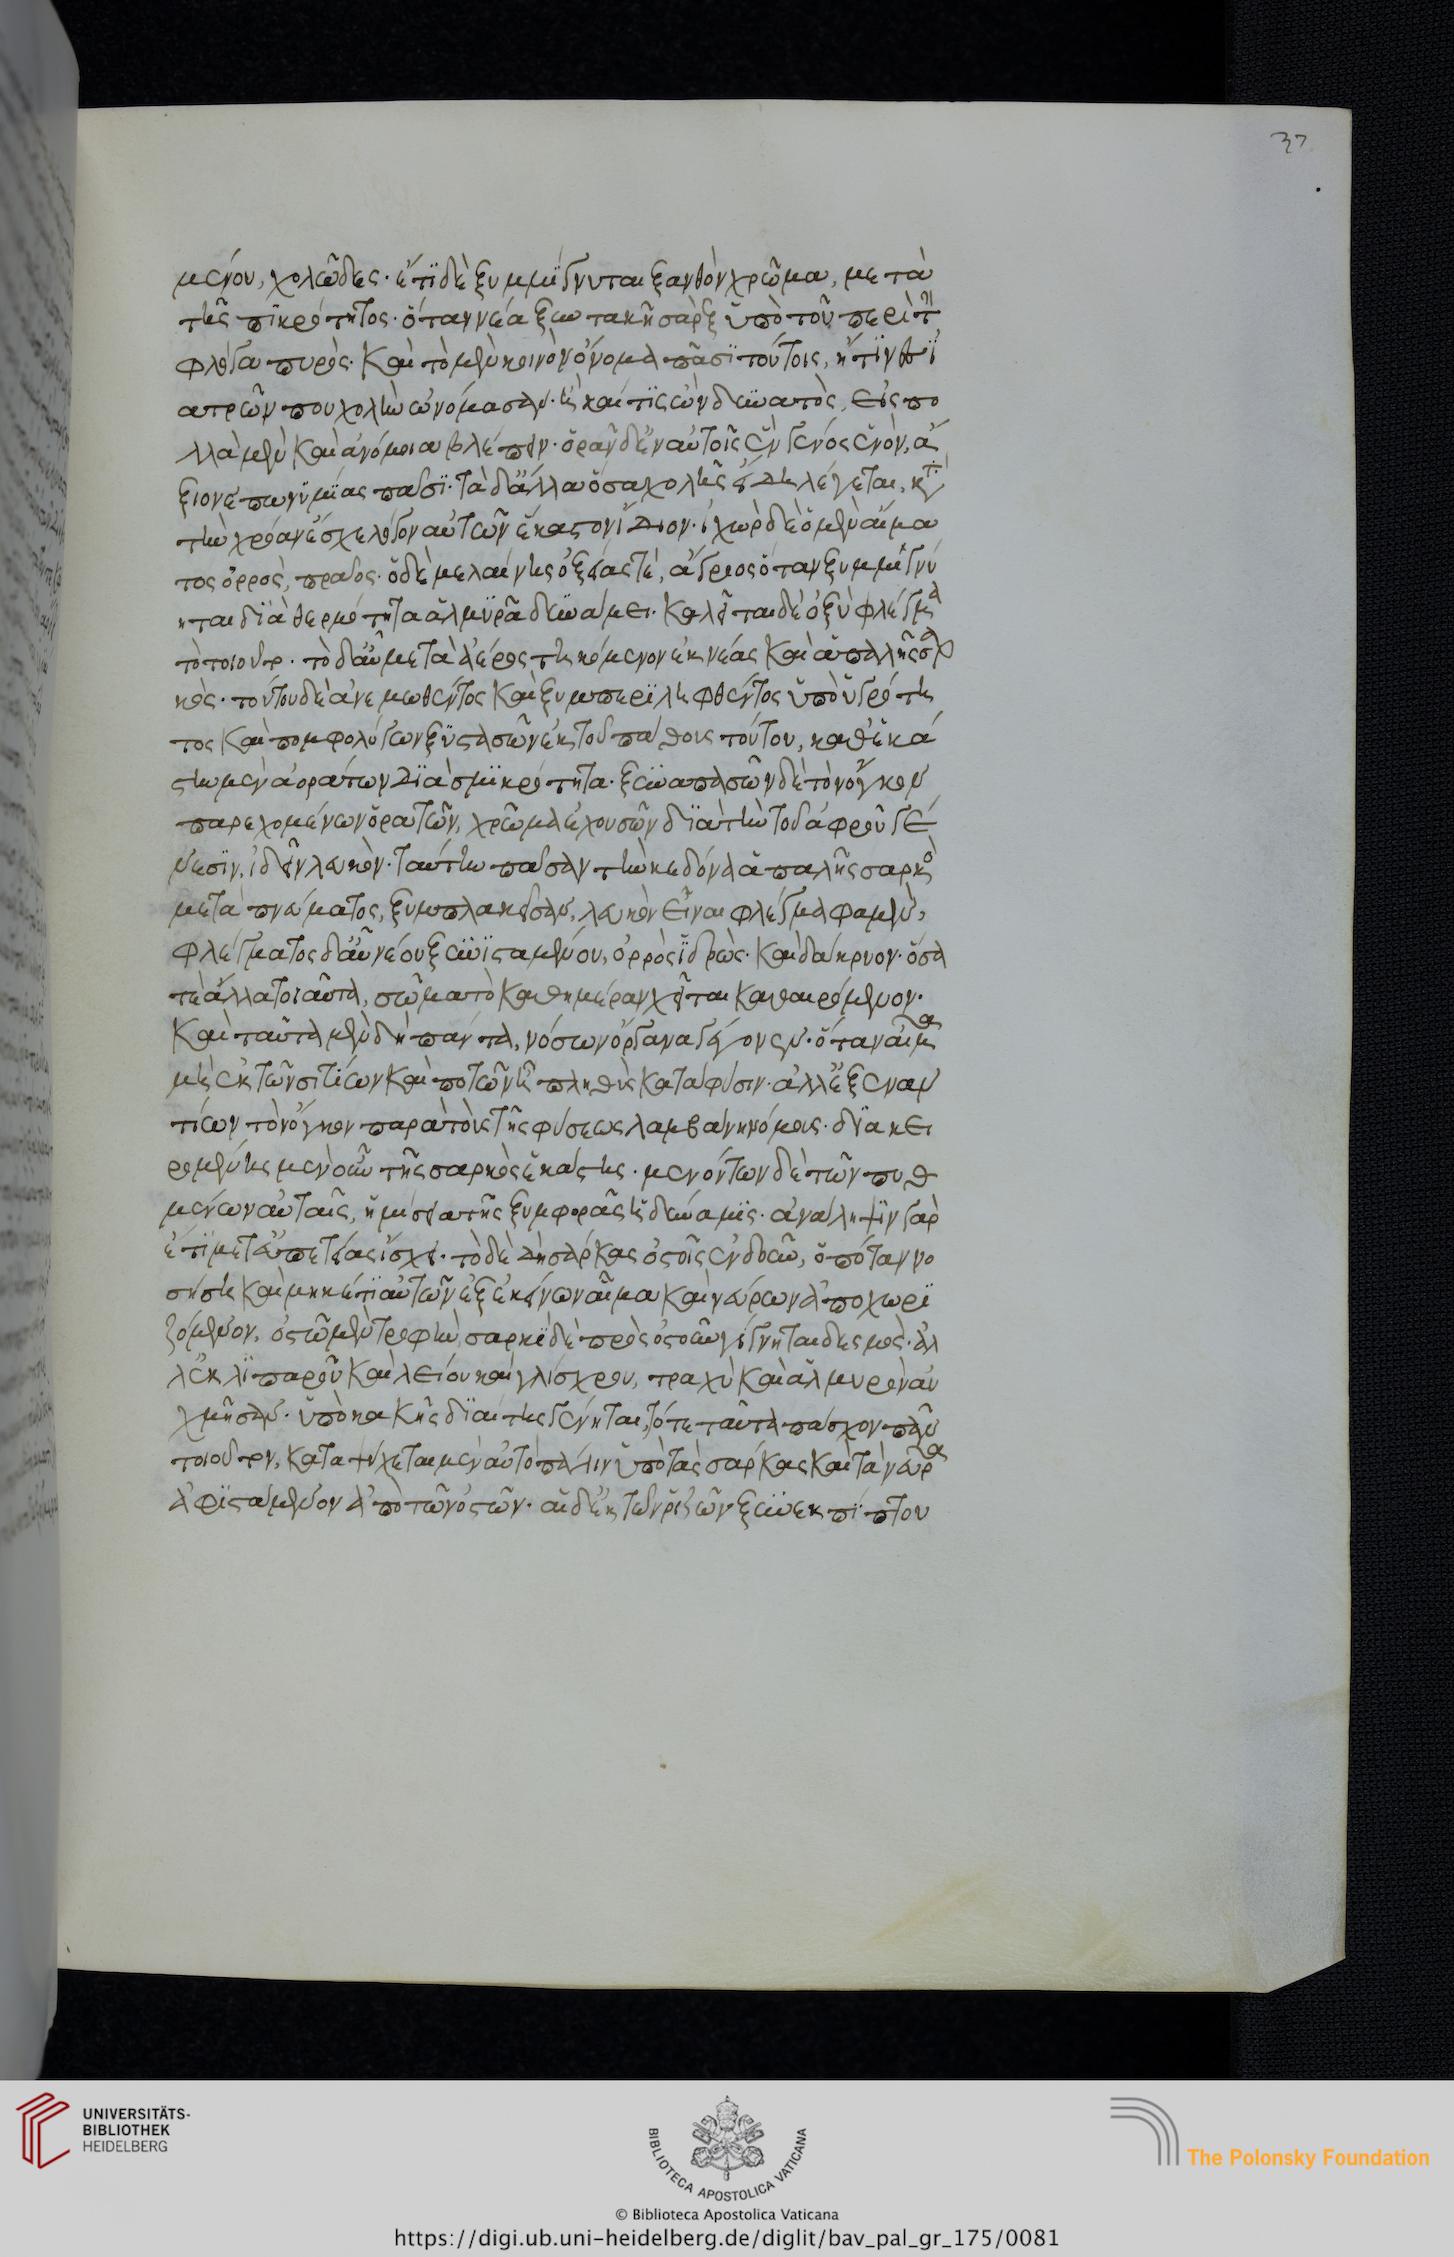 μένου, χολῶδες· ἔτϊ δὲ ξυμμίγνυται ξανθὸν χρῶμα, μετὰ
τῆς πϊκρότητος· ὅταν νέα ξυντακῆ σὰρξ ὑπὸ τοῦ περὶ τὴν
φλόγα πυρός. καὶ τὸ μὲν κοινὸν ὄνομα πᾶσϊ τούτοις, ἤ τϊν
ατρῶν που χολὴν ὠνόμασαν· ἢ καί τϊς ὢν δυνατὸς, εἰς πο
λλὰ μὲν καὶ ἀνόμοια βλέπειν· ὁρᾶν δ' ἐν αὐτοῖς ἓν γένος ἐνὸν, ἄ
ξιον ἐπωνυμίας πᾶσϊ· τὰ δ' ἄλλα ὅσα χολῆς εἴδη λέγεται, κτ
τὴν χρόαν ἔσχε λόγον αὐτῶν ἕκαστον ἴδιον· ἰχὼρ δὲ ὁ μὲν αἵμα
τος ὀρρὸς, πρᾶος· ὁ δὲ μελαίνης ὀξείας τὲ, ἄγριος ὅταν ξυμμιγνύ
ηται δϊὰ θερμότητα ἁλμϋρᾶ δυνάμει· καλεῖται δὲ ὀξὺ φλέγμα
τὸ τοιοῦτον· τὸ δ' αὖ μετὰ ἀέρος τηκόμενον ἐκ νέας καὶ ἁπαλῆς σαρ
κός· τούτου δὲ ἀνεμωθέντος καὶ ξυμπερϊληφθέντος ὑπὸ ὑγρότη
τος καὶ πομφολύγων ξϋστασῶν ἐκ τοῦ πάθους τούτου, καθ' ἑκά
στην μὲν ἀοράτων δϊὰ σμϊκρότητα· ξυναπασῶν δὲ τὸν ὄγκον
παρεχομένων ὁρατῶν, χρῶμα ἐχουσῶν δϊὰ τὴν τοῦ ἀφροῦ γέ
νεσϊν, ἰδεῖν λευκὸν· ταύτην πᾶσαν τηκεδόνα ἁπαλῆς σαρκὸ
μετὰ πνεύματος, ξυμπλακεῖσαν, λευκὸν εἶναι φλέγμα φαμὲν,
φλέγματος δ' αὖ νέου ξυνϊσταμένου, ὀρρὸς ἱδρὼς· καὶ δάκρυον· ὅσα
τὲ ἄλλα τοιαῦτα, σῶμα τὸ καθημέραν χεῖται καθαιρόμενον·
καὶ ταῦτα μὲν δὴ πάντα, νόσων ὄργανα γέγονεν· ὅταν αἷμα
μὴ ἐκ τῶν σιτίων καὶ ποτῶν πληθὺς κατὰ φύσιν· ἀλλ' ἐξ ἐναν
τίων τὸν ὄγκον παρὰ τοὺς τῆς φύσεως λαμβάνη νόμους· δϊακει
ρομένης μὲν οὖν τῆς σαρκὸς ἑκάστης· μενόντων δὲ τῶν πυθ
μένων αὐταῖς, ἡμίσεια τῆς ξυμφορᾶς ἡ δύναμϊς· ἀνάληψϊν γὰρ
ἔτϊ μετ' εὐπετείας ἴσχει· τὸ δὲ δὴ σάρκας ὀστοῖς ξυνδοῦν, ὁπόταν νο
σήση καὶ μηκέτϊ αὐτῶν ἐξ ἐκείνων αἷμα καὶ νεύρων ἀποχωρϊ
ζόμενον, ὀστῶ μὲν τροφὴ, σαρκϊ δὲ πρὸς ὀστοῦν γίγνηται δεσμὸς· ἀλ
λ' ἐκ λϊπαροῦ καὶ λείου καὶ γλίσχρου, τραχὺ καὶ ἁλμυρὸν αὐ
χμῆσαν· ὑπὸ κακῆς δϊαίτης γένηται, τότε ταῦτα πάσχον πᾶν
τοιοῦτον, καταψύχεται μὲν αὐτὸ πάλιν ὑπὸ τὰς σάρκας καὶ τὰ νεῦρα
ἀφϊστάμενον ἀπὸ τῶν ὀστῶν· αἱ δ' ἐκ τῶν ῥιζῶν ξυνεκπίπτου
37
UNIVERSITÄTS-
BIBLIOTHEK
HEIDELBERG
BIBLIOTECA APOSTOLICA VATICANA
The Polonsky Foundation
© Biblioteca Apostolica Vaticana
https://digi.ub.uni-heidelberg.de/diglit/bav_pal_gr_175/0081